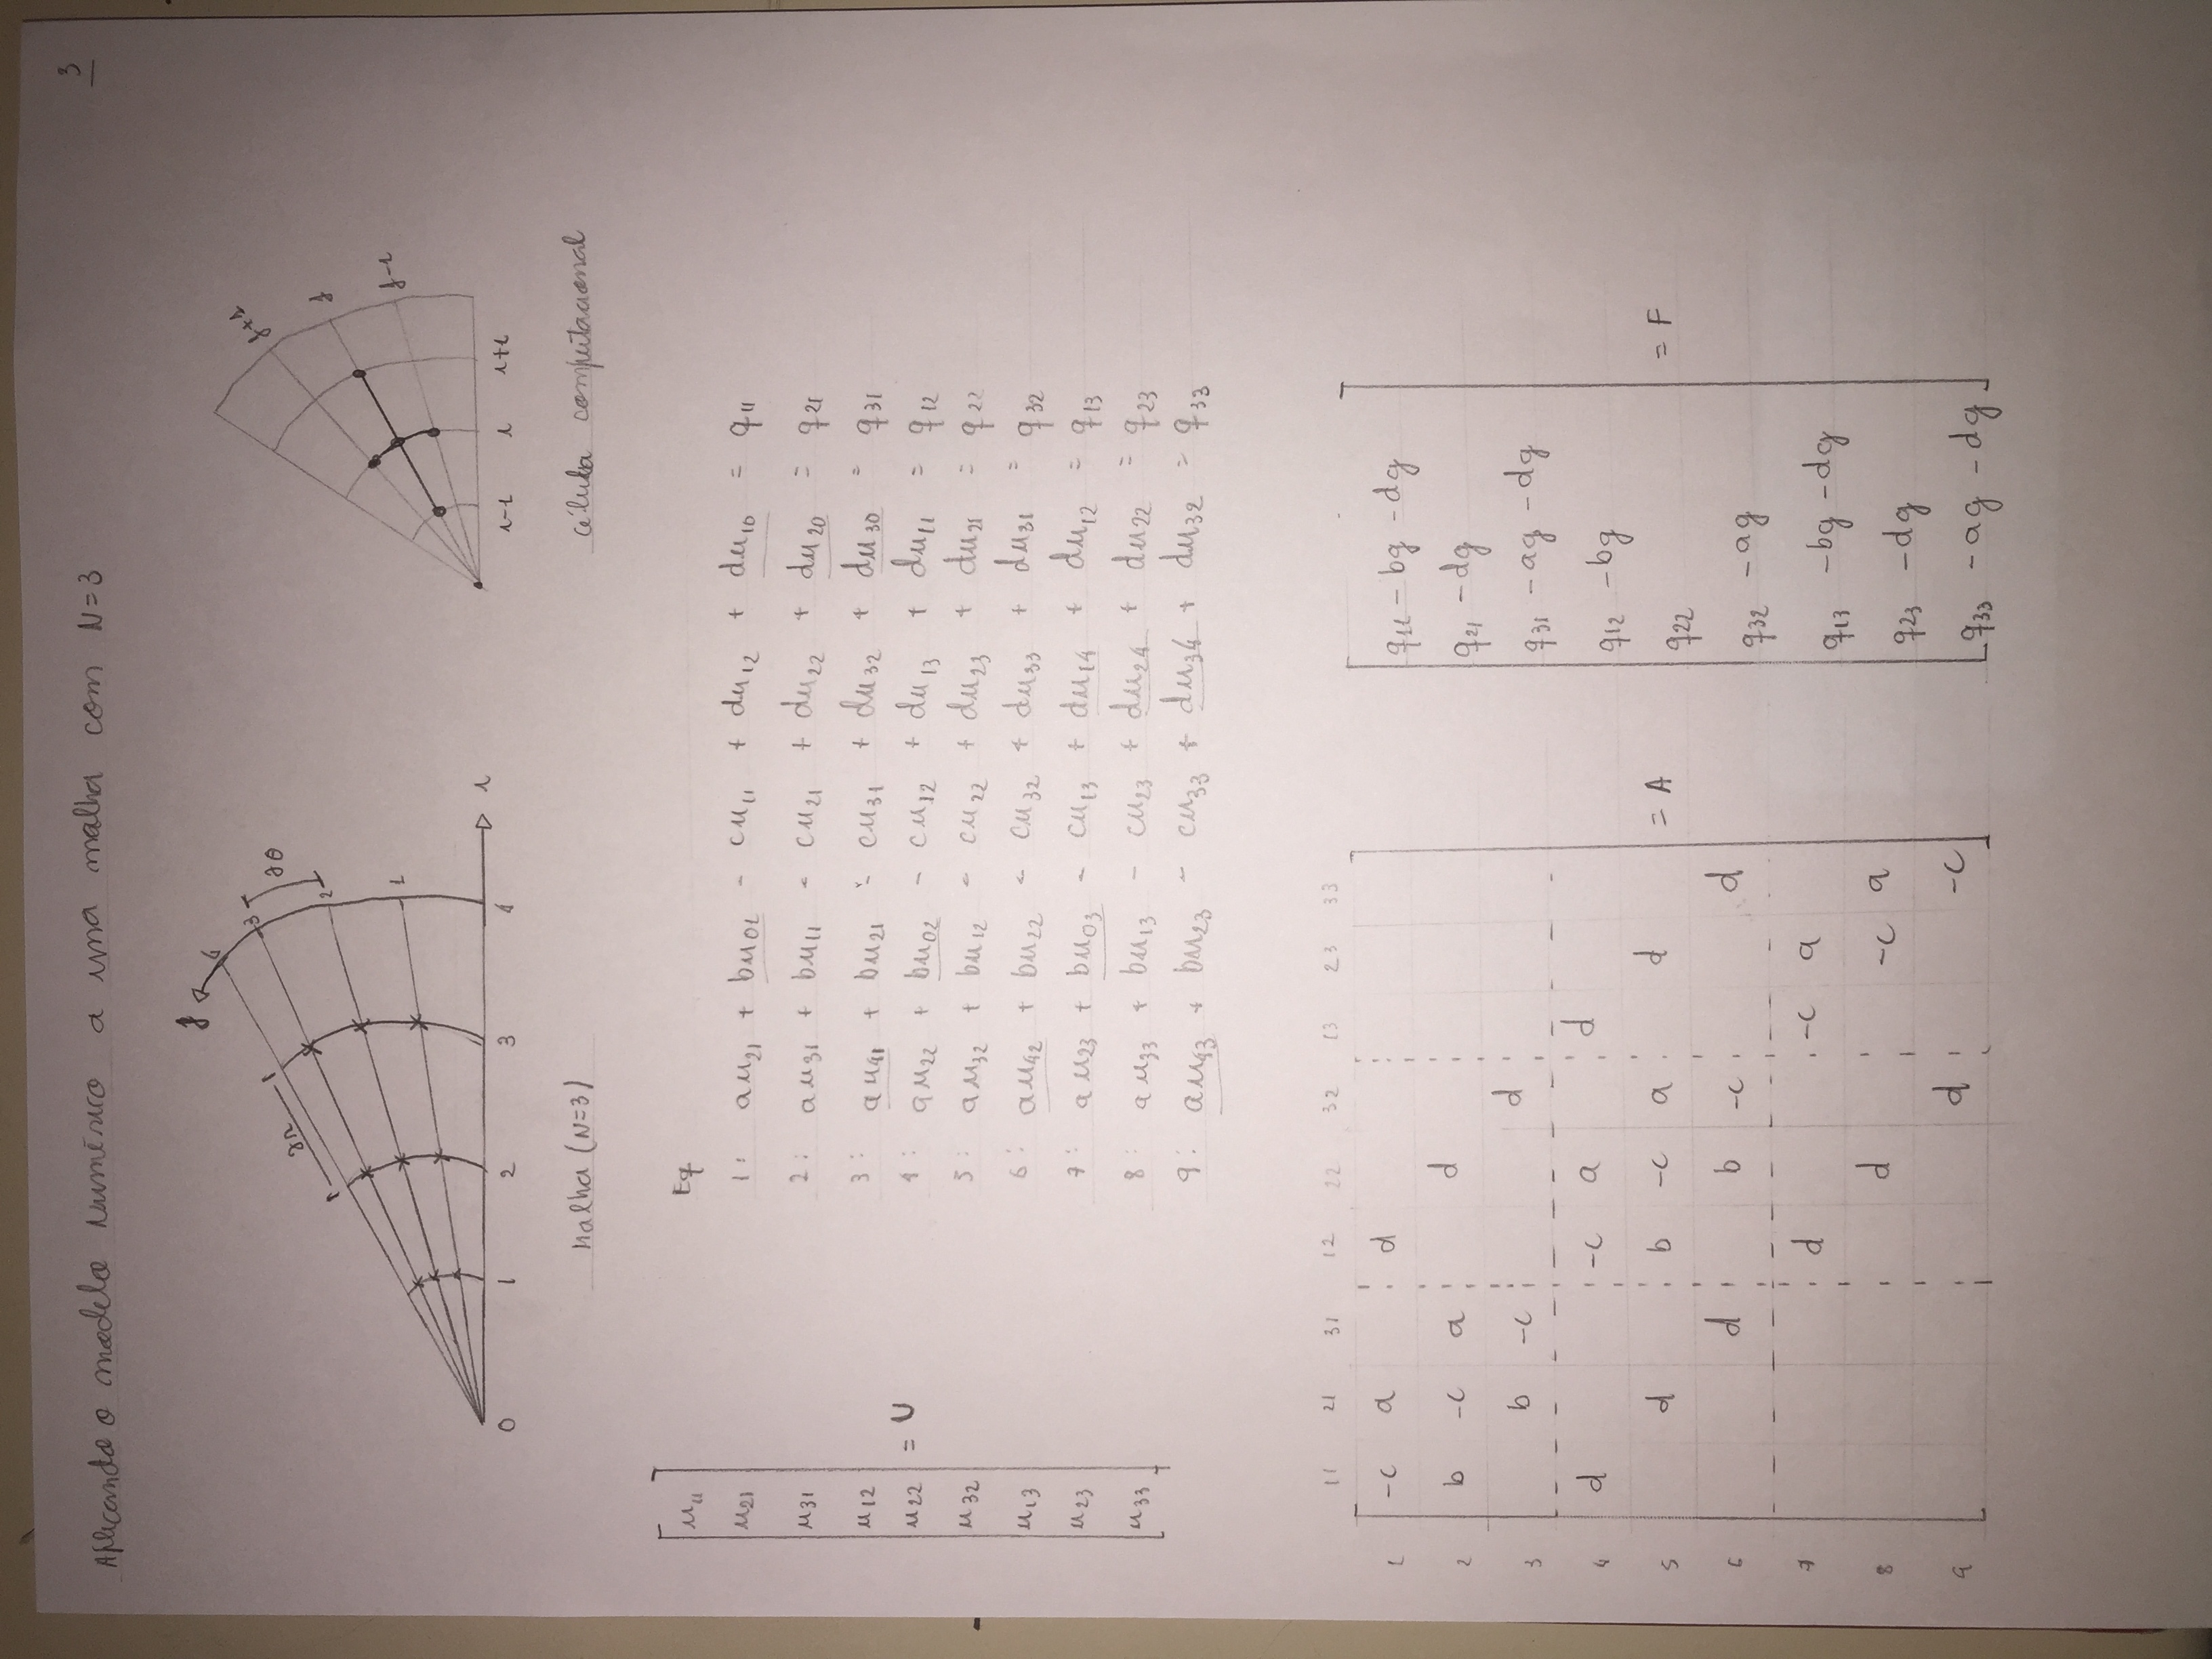 Aplicando o modelo numérico a uma malha com N=3
3
j
4
3
∂r
∂θ
2
1
i
0 1 2 3 4
j+1
j
j-1
i-1 i i+1
Malha (N=3)
célula computacional
u11
u21
u31
u12
u22 = U
u32
u13
u23
u33
Eq
1: au21 + bu01 - cu11 + du12 + du10 = q11
2: au31 + bu11 - cu21 + du22 + du20 = q21
3: au41 + bu21 - cu31 + du32 + du30 = q31
4: au22 + bu02 - cu12 + du13 + du11 = q12
5: au32 + bu12 - cu22 + du23 + du21 = q22
6: au42 + bu22 - cu32 + du33 + du31 = q32
7: au23 + bu03 - cu13 + du14 + du12 = q13
8: au33 + bu13 - cu23 + du24 + du22 = q23
9: au43 + bu23 - cu33 + du34 + du32 = q33
11 21 31 12 22 32 13 23 33
1 -c a d
2 b -c a d
3 b -c d
4 d -c a d
5 d b -c a d = A
6 d b -c d
7 d -c a
8 d -c a
9 d -c
q11 - bg - dg
q21 - dg
q31 - ag - dg
q12 - bg
q22 = F
q32 - ag
q13 - bg - dg
q23 - dg
q33 - ag - dg